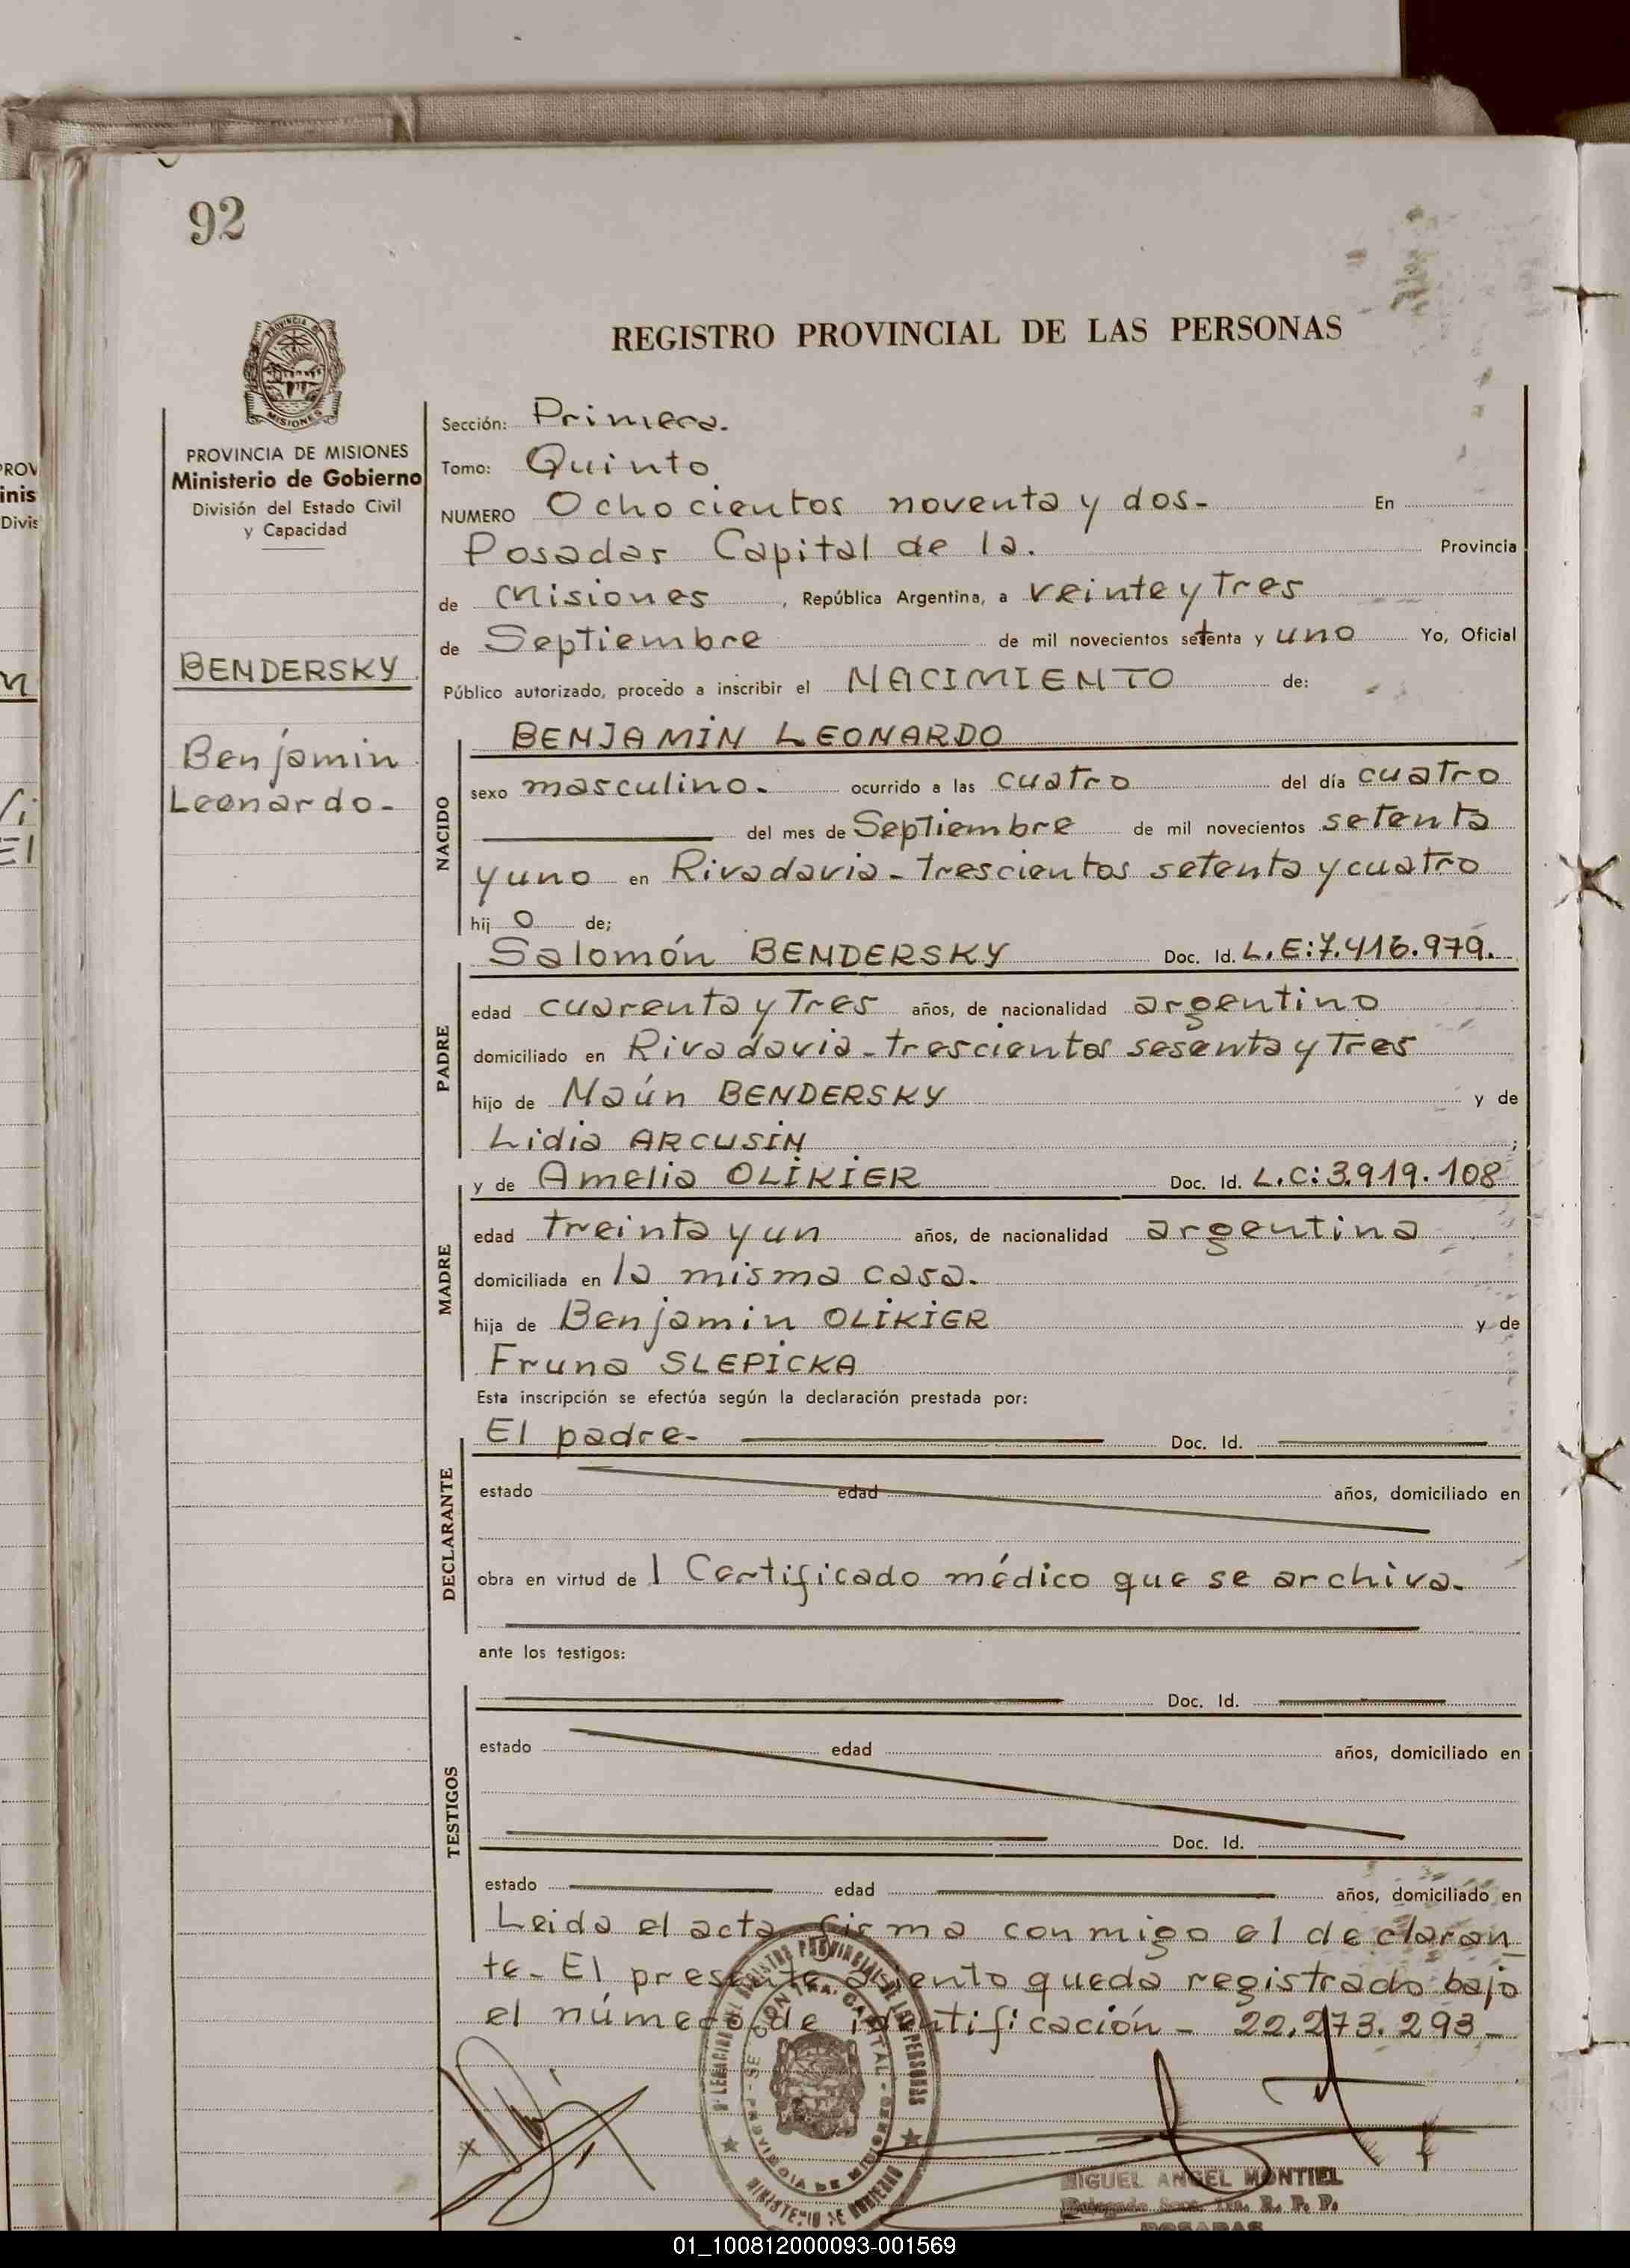 92
REGISTRO PROVINCIAL DE LAS PERSONAS
MISIONES
PROVINCIA DE MISIONES
Ministerio de Gobierno
División del Estado Civil
y Capacidad
BENDERSKY
Benjamin
Leonardo-
Sección: Primera.
Tomo: Quinto
NUMERO Ochocientos noventa y dos- En
Posadas Capital de la. Provincia
de Misiones, República Argentina, a veinte y Tres
de Septiembre de mil novecientos setenta y uno Yo, Oficial
Público autorizado, procedo a inscribir el NACIMIENTO de:
NACIDO
BENJAMIN LEONARDO
sexo masculino. ocurrido a las cuatro del día cuatro
del mes de Septiembre de mil novecientos setenta
y uno en Rivadavia - trescientos setenta y cuatro
hijo de;
PADRE
Salomón BENDERSKY Doc. Id. L.E:7.416.979.
edad cuarenta y Tres años, de nacionalidad argentino
domiciliado en Rivadavia - trescientos sesenta y Tres
hijo de Naún BENDERSKY y de
Lidia ARCUSIN;
MADRE
y de Amelia OLIKIER Doc. Id. L.C:3.919.108
edad treinta y un años, de nacionalidad argentina
domiciliada en la misma casa.
hija de Benjamin OLIKIER y de
Fruna SLEPICKA
Esta inscripción se efectúa según la declaración prestada por:
DECLARANTE
El padre- Doc. Id.
estado edad años, domiciliado en
obra en virtud de 1 Certificado médico que se archiva.
ante los testigos:
TESTIGOS
Doc. Id.
estado edad años, domiciliado en
Doc. Id.
estado edad años, domiciliado en
Leida el acta firma conmigo el declaran
te- El presente asiento queda registrado bajo
el número de identificación - 22.273.293-
MIGUEL ANGEL MONTIEL
POSADAS
01_100812000093-001569